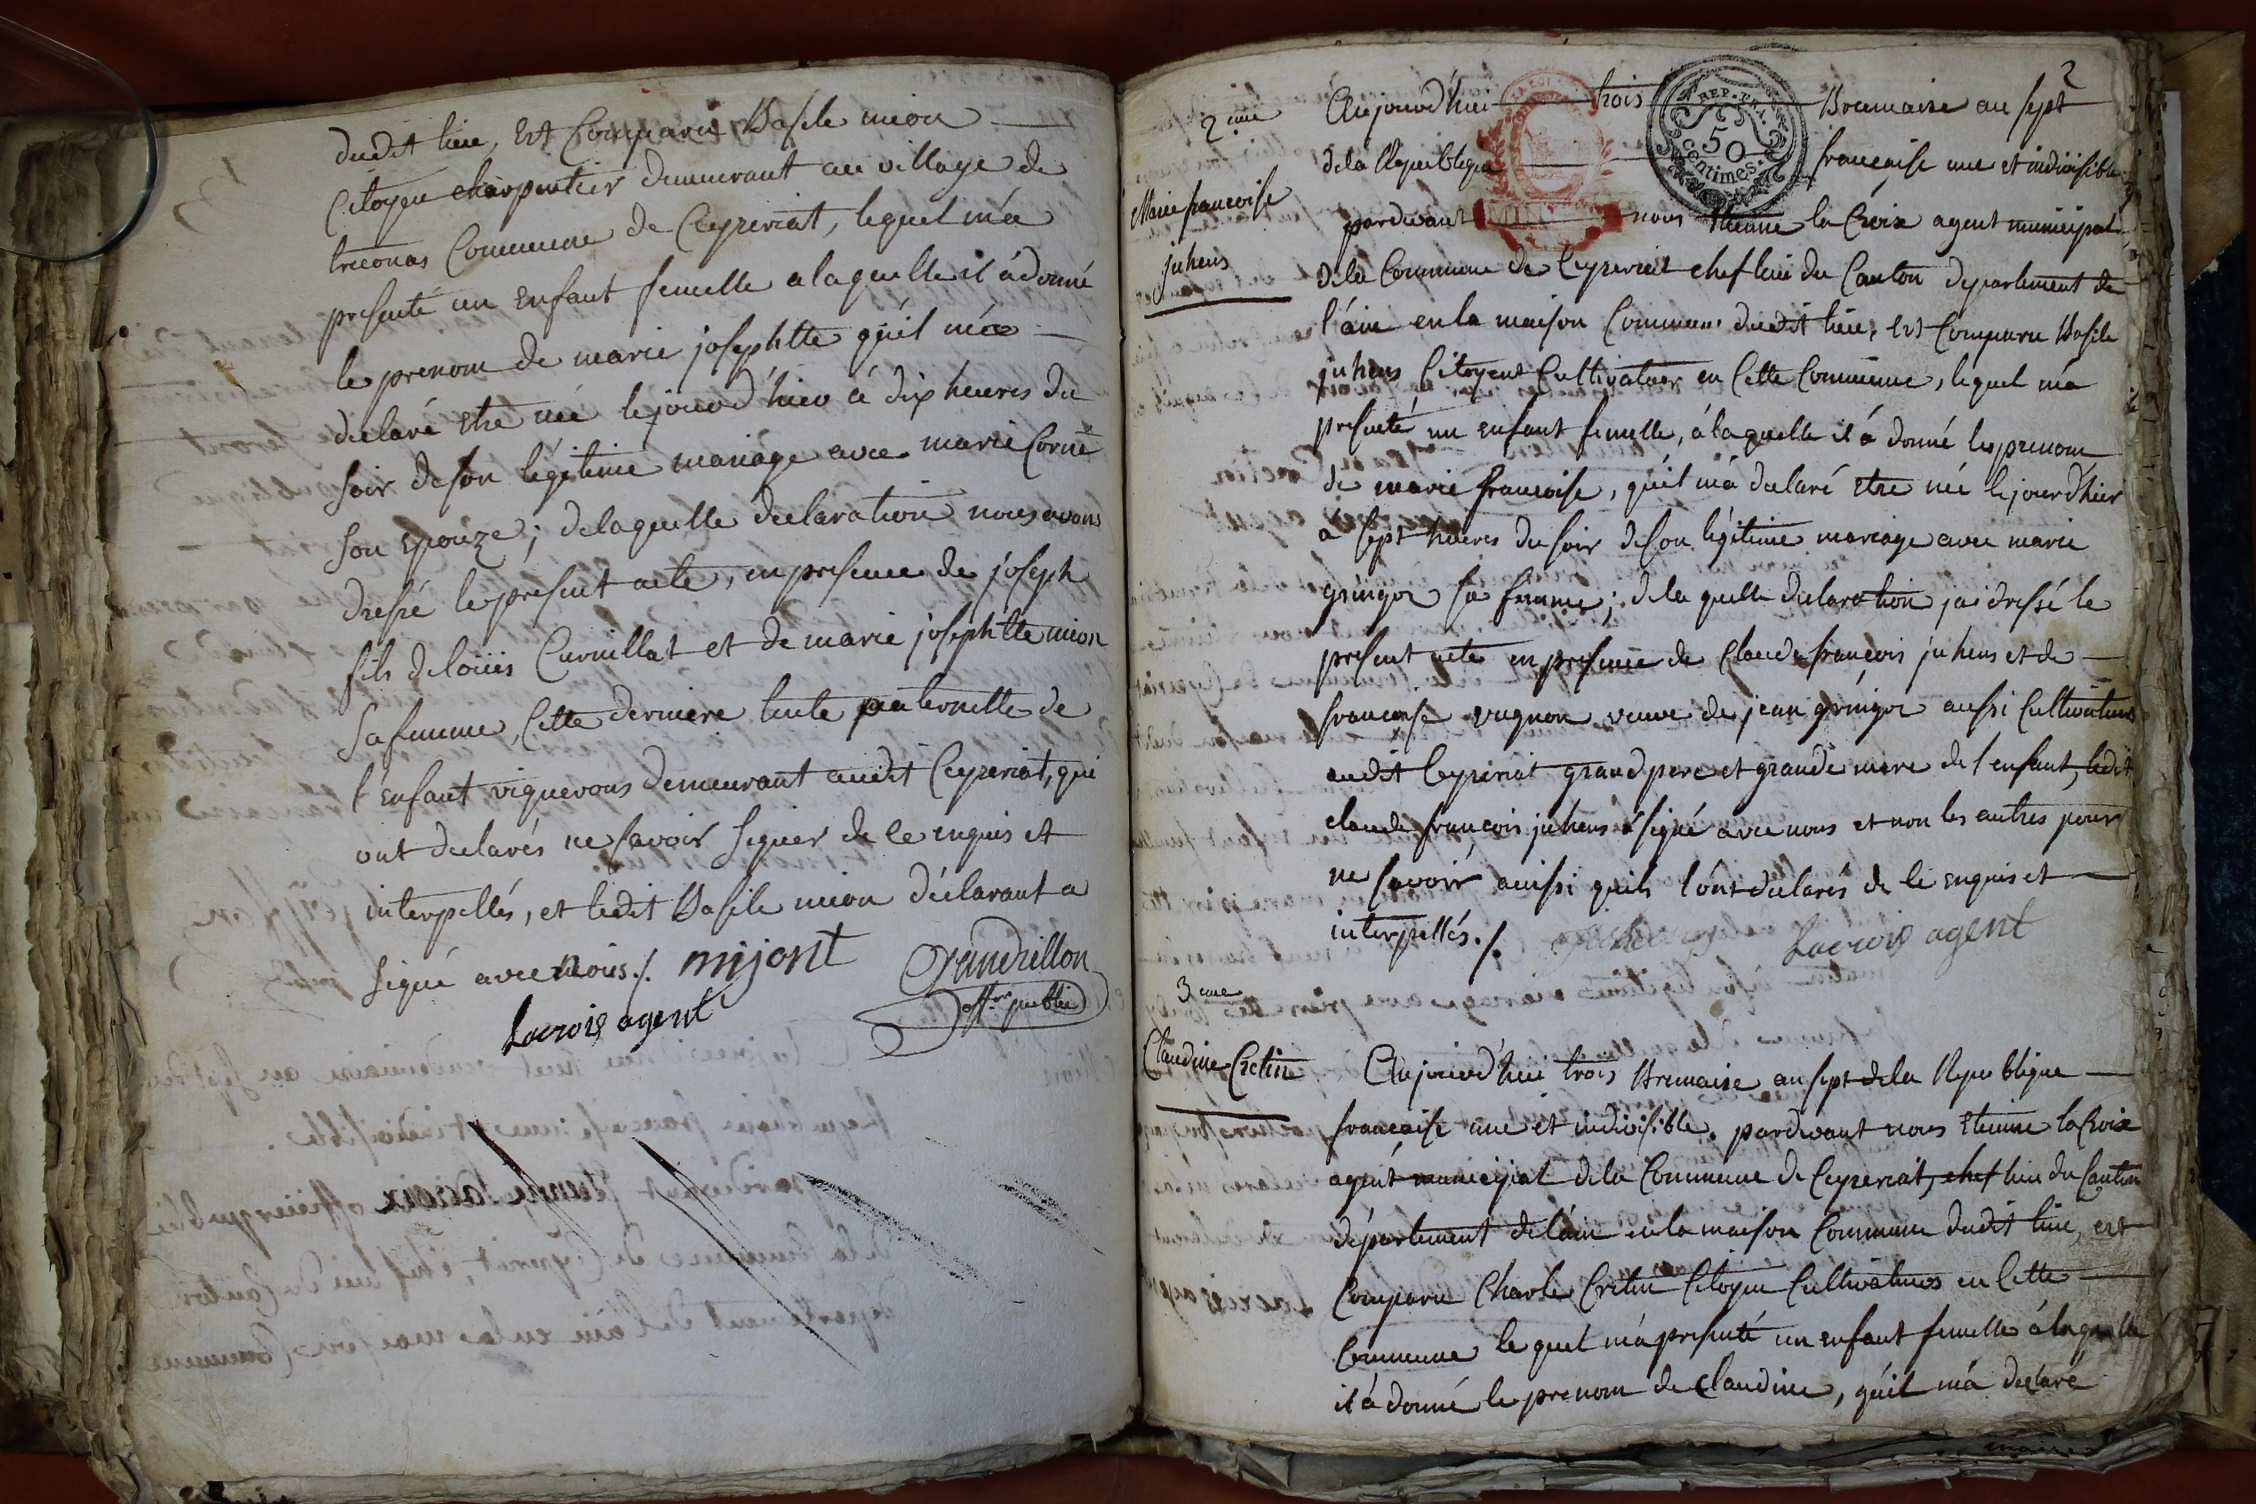 dudit lieu, Est Comparu Basile mion
Citoyen charpentier demeurant au village de
treconas Commune de Ceyzeriat, lequel m'a
presenté un Enfant femelle a laquelle il à donné
le prenom de marie josephtte qu'il m'a
declaré etre née le jourd'hier à dix heures du
soir de son légitime mariage avec marie Corne
son Epouze; de laquelle declaration nous avons
dressé le present acte, en presence de joseph
fils de loüis Curnillat et de marie josephtte mion
sa femme, Cette derniere tante paternelle de
l'enfant vignerons demeurant audit Ceyzeriat, qui
ont declarés ne savoir signer de ce enquis et
interpellés, et ledit Basile mion déclarant a
signé avec nous ./. mijont
Grandrillon
offer public
Lacroix agent
2
2eme
Marie francoise
juhens
Aujourd'hui trois Brumaire an sept
de la Republique francaise une et indivisible
pardevant nous Etienne la Croix agent municipal
de la Commune de Ceyzeriat chef lieu du Canton departement de
l'ain en la maison Commune dudit lieu, Est Comparu Basile
juhens Citoyen Cultivateur en Cette Commune, lequel m'a
presenté un enfant femelle, à laquelle il à donné les prenom
de marie francoise, qu'il m'à declaré etre née le jour d'hier
a sept heures du soir de son légitime mariage avec marie
gringoz sa femme; de la quelle declaration j'ai dressé le
present acte en presence de Claude françois juhens et de
francoise vugnon veuve de jean gringoz aussi Cultivateurs
audit Ceyzeriat grand pere et grande mere de l'enfant, ledit
claude françois juhens à signé avec nous et non les autres pour
ne savoir ainssi quils l'ont declarés de ce enquis et
interpellés ./.
Lacroix agent
3eme
Claudine Cretin
Aujourd'hui trois Brumaire an sept de la Republique
francaise une et indivisible. pardevant nous Etienne la Croix
agent municipal de la Commune de Ceyzeriat, chef lieu du Canton
département de l'ain en la maison Commune dudit lieu, est
Comparu Charle Cretin Citoyen Cultivateur en Cette
Commune le quel m'à presenté un enfant femelle à laquelle
il à donné le prenom de Claudine, qu'il m'à declaré
REP. FRA.
50
centimes